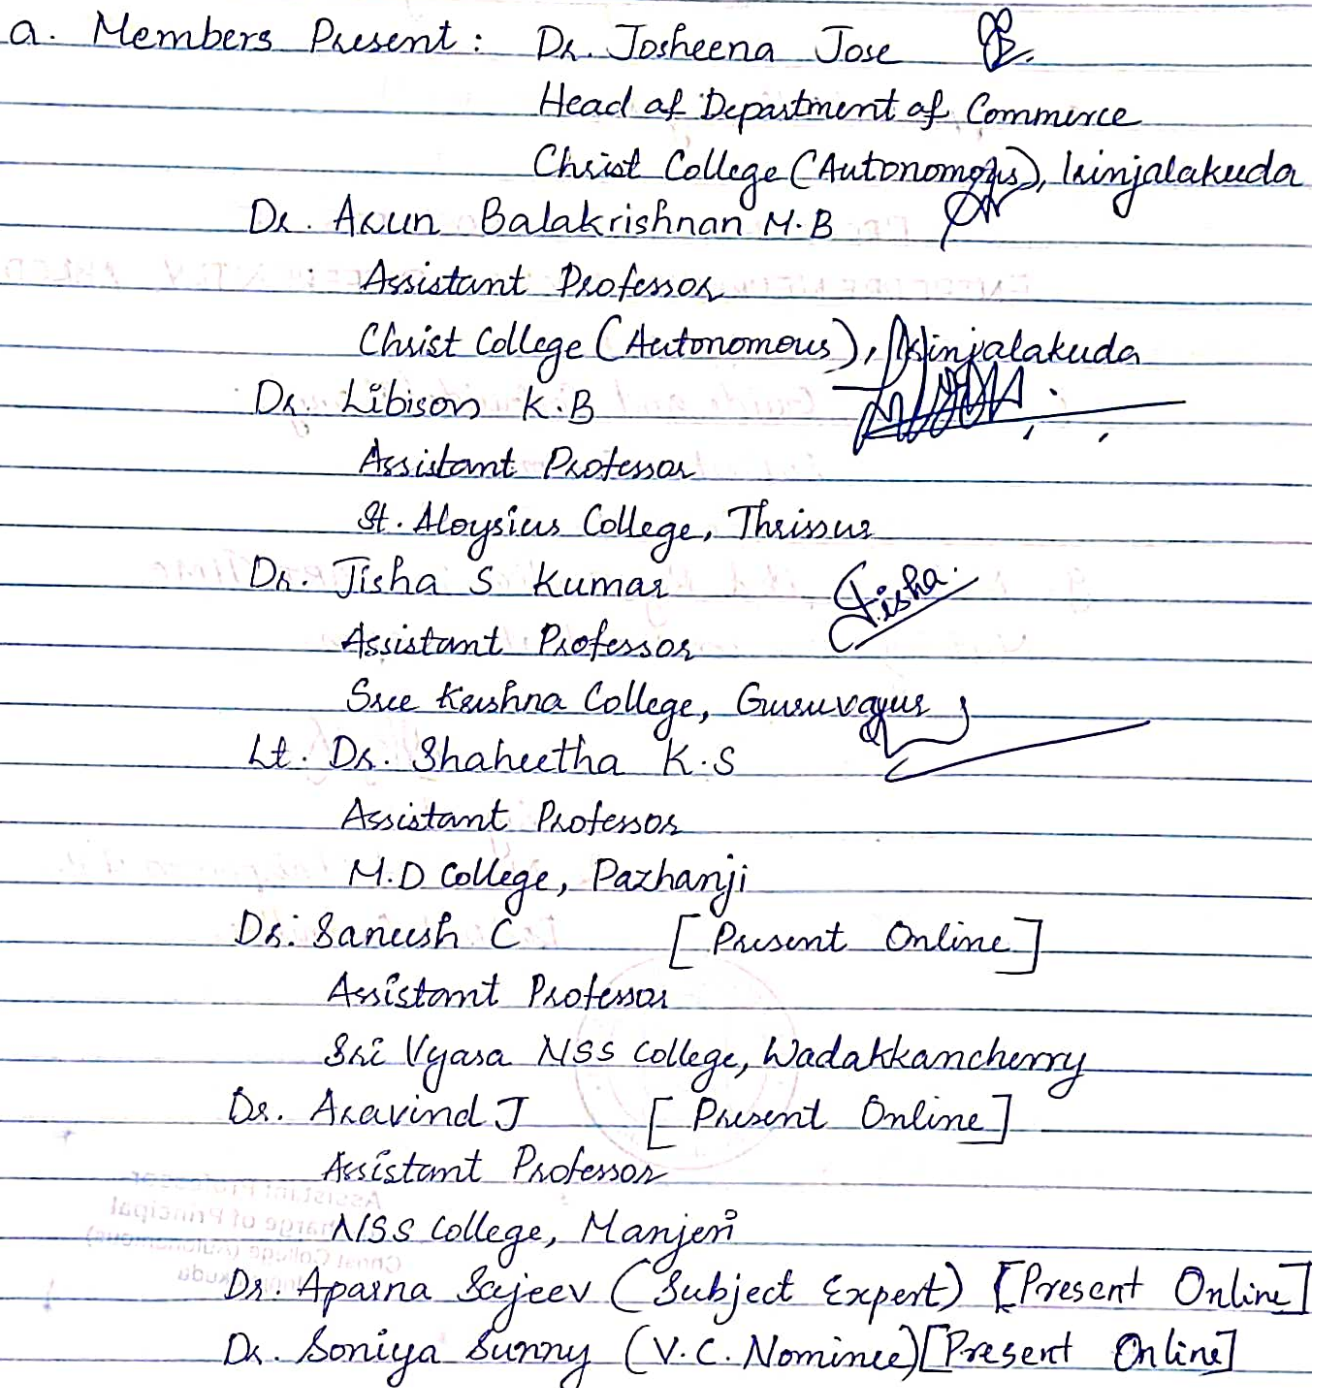 a. Members Present : Dr. Josheena Jose
Head of Department of Commerce
Christ College (Autonomous), Irinjalakuda
Dr. Arun Balakrishnan M.B
Assistant Professor
Christ College (Autonomous), Irinjalakuda
Dr. Libison K.B
Assistant Professor
St. Aloysius College, Thrissur
Dr. Jisha S Kumar Jisha.
Assistant Professor
Sree Krishna College, Guruvayur
Lt. Dr. Shaheetha K.S
Assistant Professor
M.D College, Pazhanji
Dr. Saneesh C [Present Online]
Assistant Professor
Sri Vyasa NSS College, Wadakkancherry
Dr. Aravind J [Present Online]
Assistant Professor
NSS College, Manjeri
Dr. Aparna Sajeev (Subject Expert) [Present Online]
Dr. Soniya Sunny (V.C. Nominee) [Present Online]